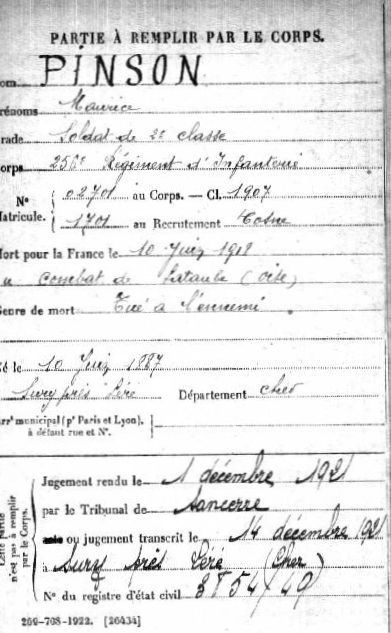 PARTIE À REMPLIR PAR LE CORPS.
om PINSON
rénoms Maurice
rade Soldat de 2e classe
orps 256e Régiment d'Infanterie
N° 02701 au Corps. — Cl. 1907
atricule. 1701 au Recrutement Cosne
ort pour la France le 10 Juin 1918
combat de Lataule (Oise)
enre de mort Tué à l'ennemi
é le 10 Juin 1887
Sury près Léré Département Cher
arrt municipal (pr Paris et Lyon),
à défaut rue et N°.
Cette partie
n'est pas à remplir
par le Corps.
Jugement rendu le 1 décembre 1921
par le Tribunal de Sancerre
ou jugement transcrit le 14 décembre 1921
à Sury près Léré (Cher)
N° du registre d'état civil 3854/49
269-708-1922. [26434]